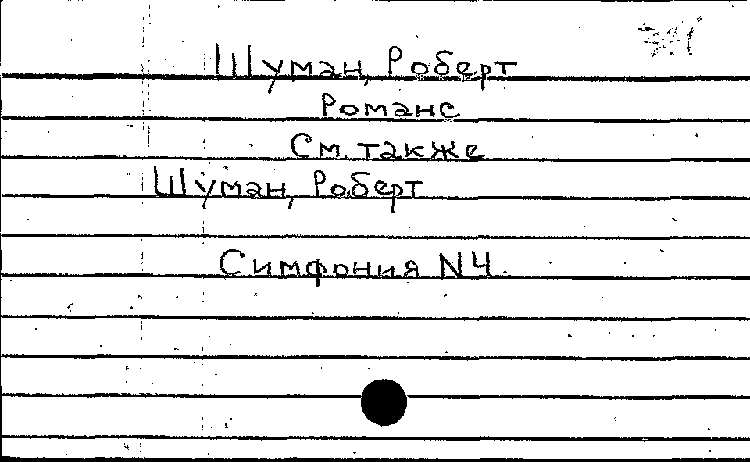 Шуман, Роберт
Романс
См. также
Шуман, Роберт
Симфония N4